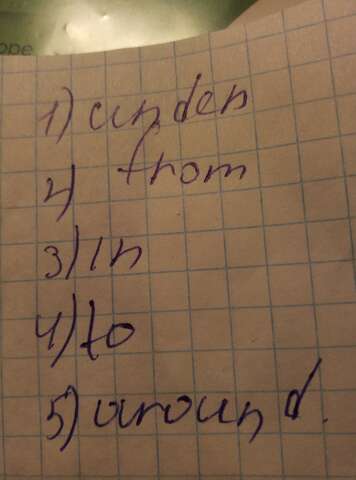 оре
1) under
2) from
3) in
4) to
5) around.